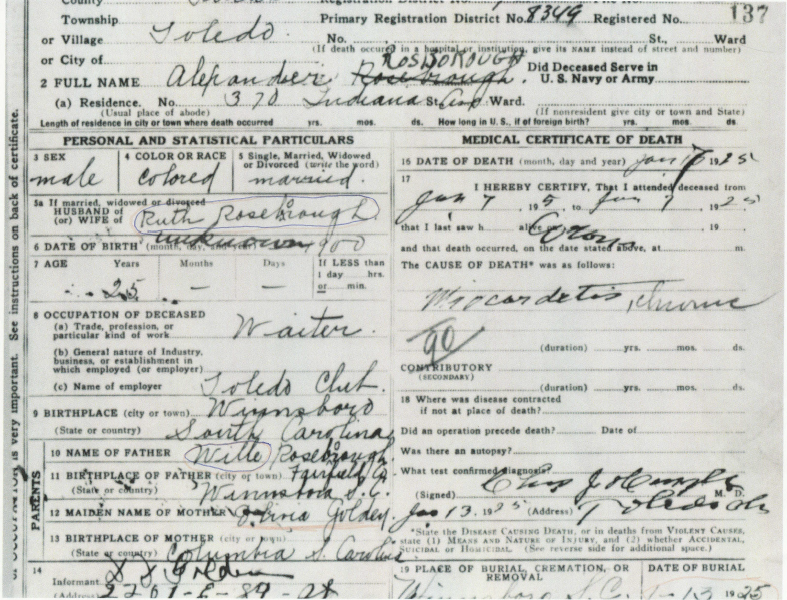 County
Township
Primary Registration District No. 8349 Registered No.
137
or Village Toledo
No. St., Ward
(If death occurred in a hospital or institution, give its NAME instead of street and number)
or City of
ROSBOROUGH
Did Deceased Serve in
U. S. Navy or Army
2 FULL NAME Alexander Rosebrough.
(a) Residence. No. 370 Indiana St. Ave Ward.
(Usual place of abode) (If nonresident give city or town and State)
Length of residence in city or town where death occurred yrs. mos. ds. How long in U. S., if of foreign birth? yrs. mos. ds.
PERSONAL AND STATISTICAL PARTICULARS
3 SEX
male
4 COLOR OR RACE
colored
5 Single, Married, Widowed
or Divorced (write the word)
married.
5a If married, widowed or divorced
HUSBAND of
(or) WIFE of Ruth Rosebrough.
6 DATE OF BIRTH (month, day, and year) unknown 1900
7 AGE Years Months Days If LESS than
1 day hrs.
or min.
25 – –
8 OCCUPATION OF DECEASED
(a) Trade, profession, or
particular kind of work Waiter.
(b) General nature of Industry,
business, or establishment in
which employed (or employer)
(c) Name of employer Toledo Club.
9 BIRTHPLACE (city or town) Winnsboro
(State or country) South Carolina
PARENTS
10 NAME OF FATHER Willo Rosebrough
11 BIRTHPLACE OF FATHER (city or town) Fairfield Co
(State or country) Winnsboro S. C.
12 MAIDEN NAME OF MOTHER Golden.
13 BIRTHPLACE OF MOTHER (city or town)
(State or country) Columbia S. Carolina
14
Informant
(Address)
MEDICAL CERTIFICATE OF DEATH
16 DATE OF DEATH (month, day and year) Jan 1925
17
I HEREBY CERTIFY, That I attended deceased from
Jan 7, 195, to Jan 7, 1925
that I last saw h alive on , 19
and that death occurred, on the date stated above, at m.
The CAUSE OF DEATH* was as follows:
Miocardetis, chronic
90
(duration) yrs. mos. ds.
CONTRIBUTORY
(SECONDARY)
(duration) yrs. mos. ds.
18 Where was disease contracted
if not at place of death?
Did an operation precede death? Date of
Was there an autopsy?
What test confirmed diagnosis?
(Signed) Chas J M. D.
Jan 13, 1925 (Address) Toledo O
*State the DISEASE CAUSING DEATH, or in deaths from VIOLENT CAUSES,
state (1) MEANS AND NATURE OF INJURY, and (2) whether ACCIDENTAL,
SUICIDAL or HOMICIDAL. (See reverse side for additional space.)
19 PLACE OF BURIAL, CREMATION, OR
REMOVAL
DATE OF BURIAL
Winnsboro S. C. 1-13 1925
is very important. See instructions on back of certificate.